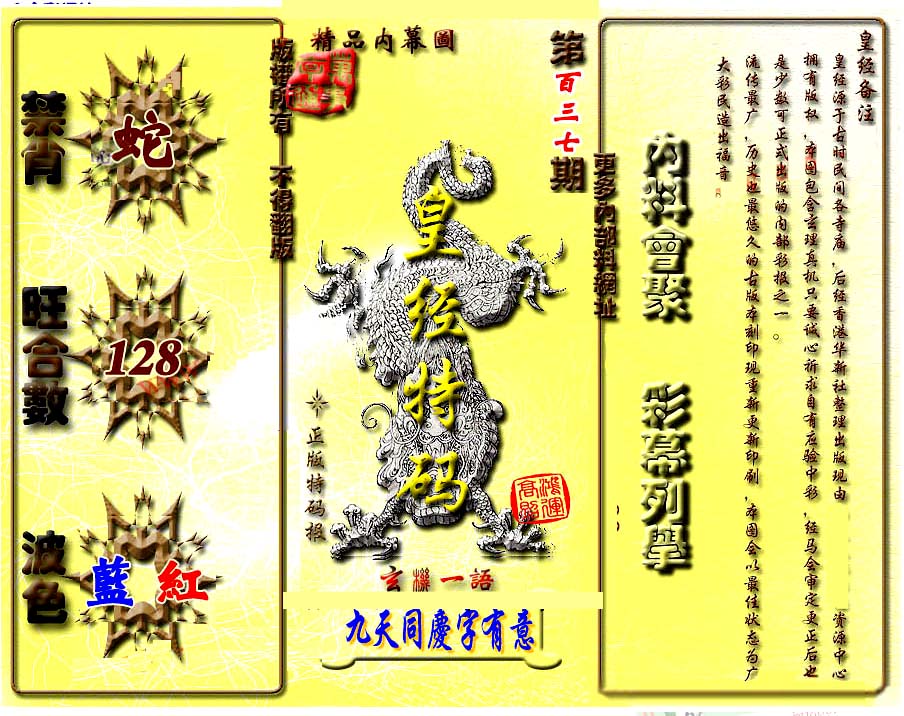 禁肖
蛇
旺合數
128
波色
藍 紅
版權所有 不得翻版
精品内幕圖
第百三七期
更多內部料網址
皇经特码
正版特码报
鴻運高照
玄機一語
九天同慶字有意
内料會聚 彩幕列舉
皇经备注
皇经源于古时民间各寺庙，后经香港华新社整理出版现由 资源中心
拥有版权，本图包含玄理真机只要诚心祈求自有应验中彩，经马会审定更正后也
是少数可正式出版的内部彩报之一。
流传最广，历史也最悠久的古版本刻印现重新更新印刷，本图会以最佳状态为广
大彩民造出福音